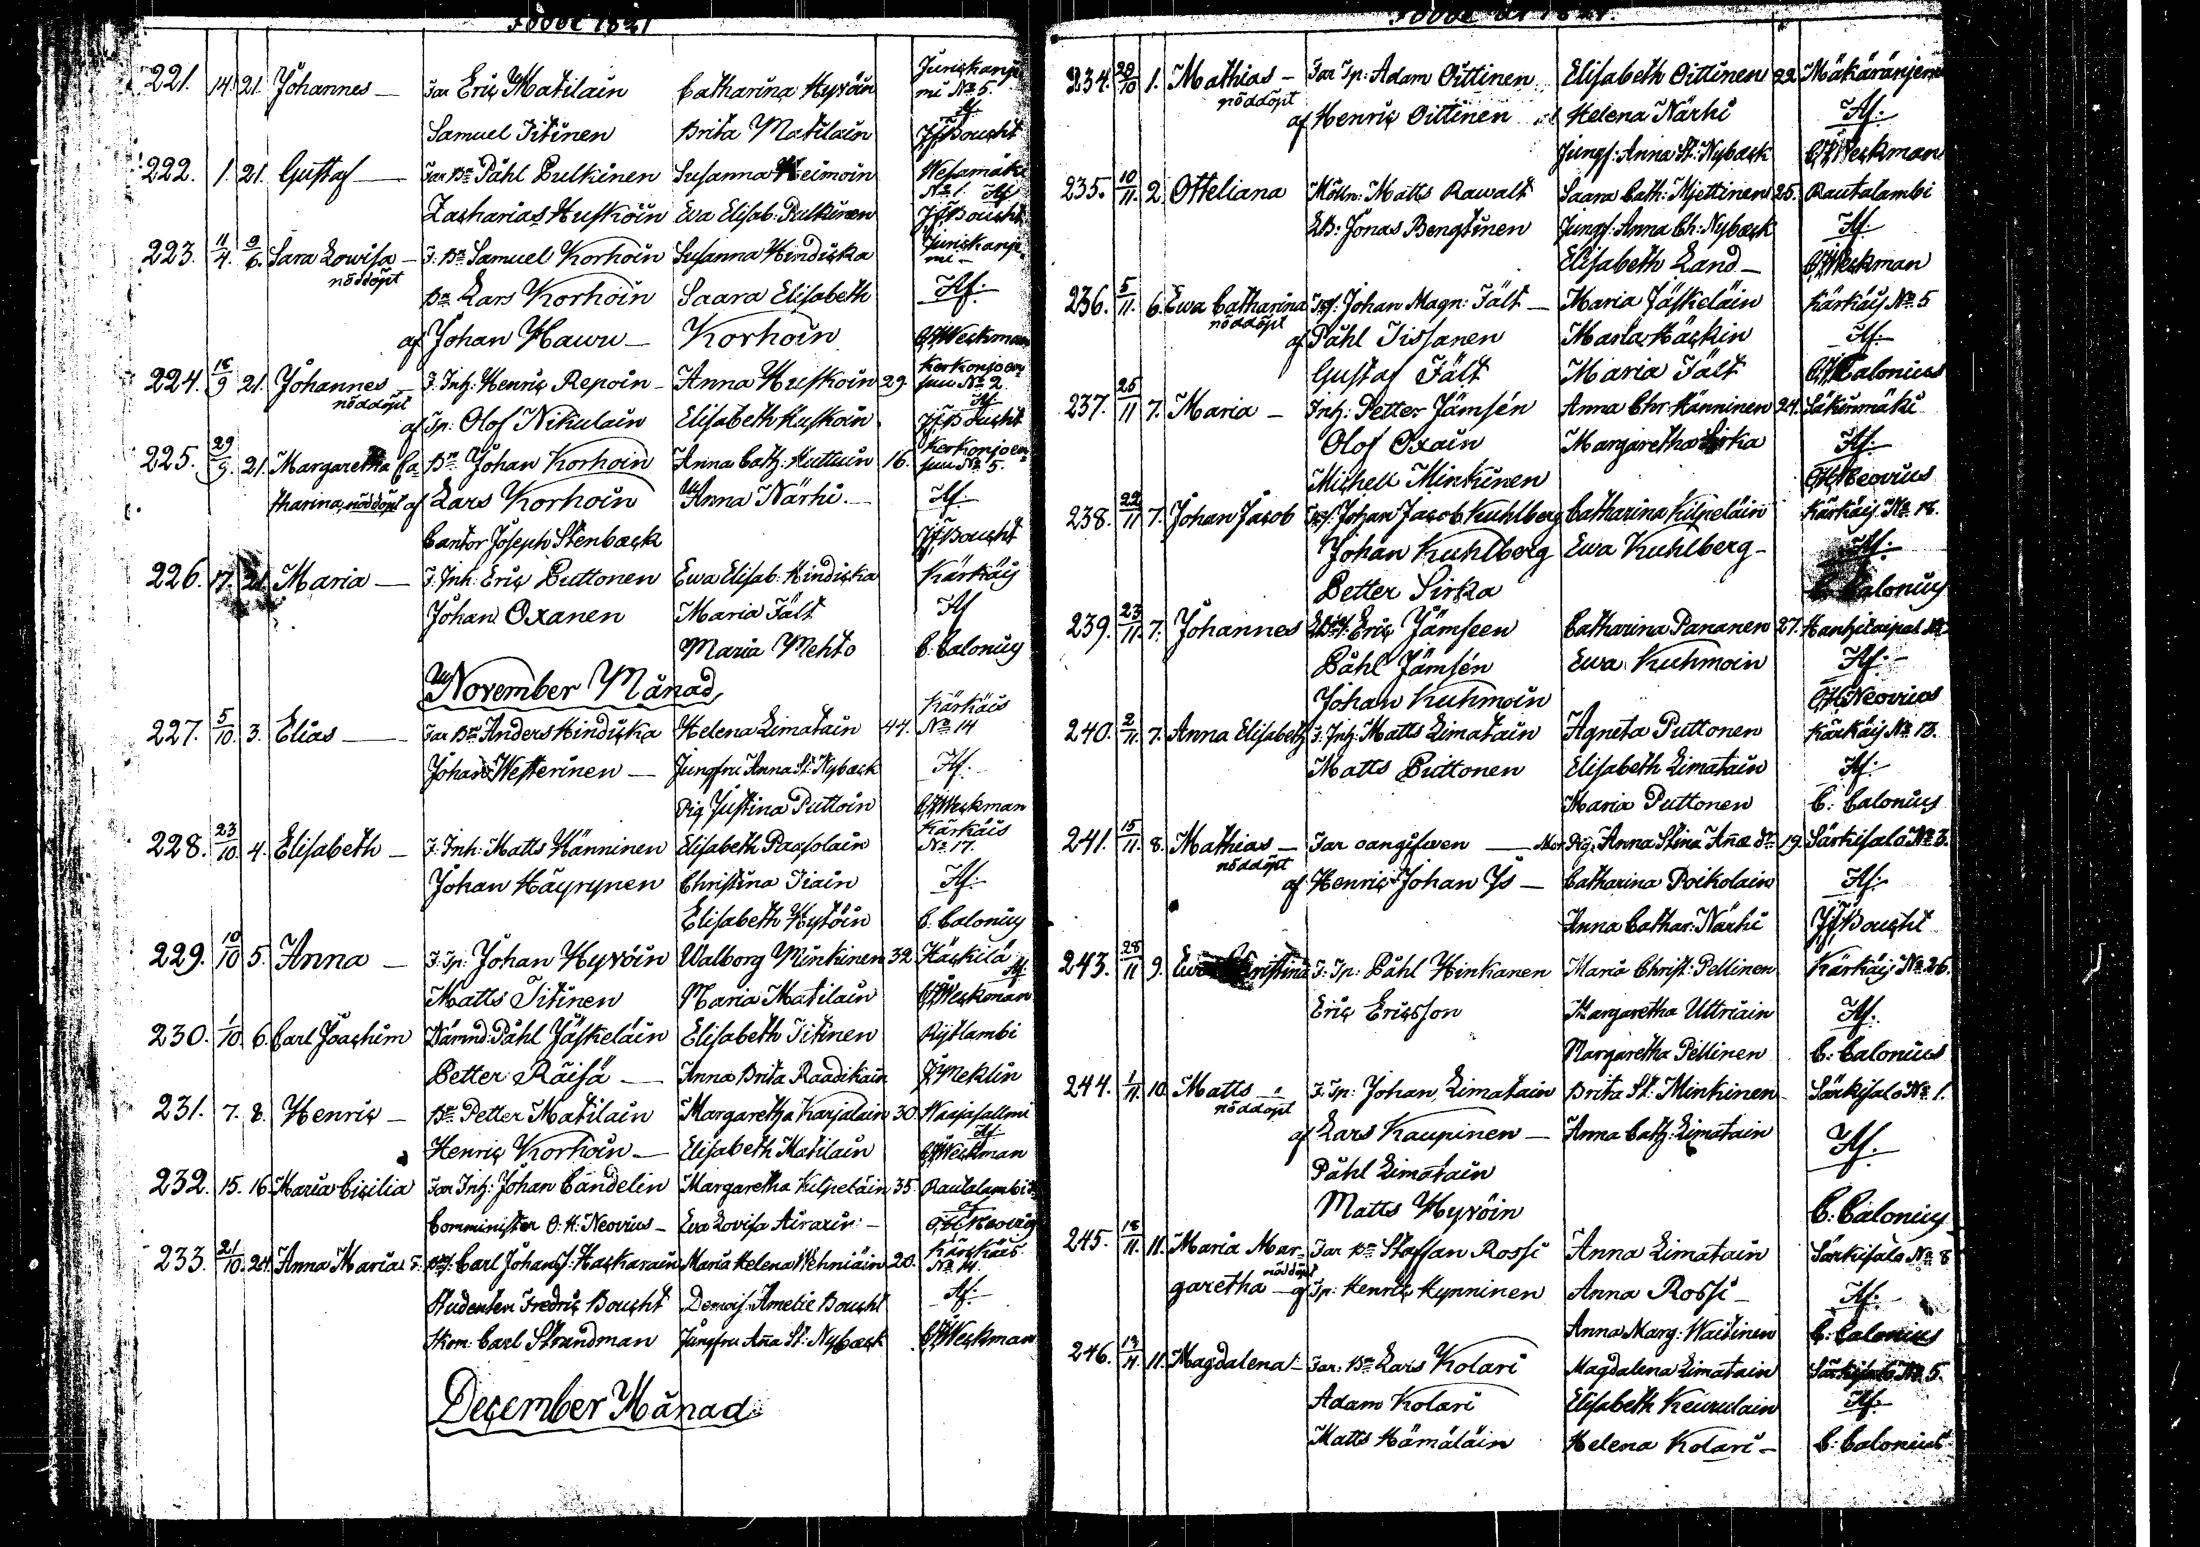 Födde 1821
221. 14. 21. Johannes — Far Eric Matilain Catharina Hyvöin Juriskanje
mi No 5.
Af
Samuel Titinen Brita Matilain JF Boucht
222. 1. 21. Gustaf — Far Bn Påhl Pulkinen Susanna Heimoin Wesamäki
No 1. Af
Zacharias Huskoin Eva Elisab: Pulkinen JF Boucht
223. 11/4. 9/6. Sara Lowisa — F. Bn Samuel Korhoin Susanna Hindicka
nöddöpt
Bn Lars Korhoin Saara Elisabeth Af.
af Johan Hawu — Korhoin CF Weckman
224. 16/9 21. Johannes — F. Inh: Henric Repoin — Anna Huskoin 29. Korkonjoen
suu No 2.
nöddöpt Af
af Tp: Olof Nikulain Elisabeth Huskoin JF Boucht
225. 29/9. 21. Margaretha Ca Bn Johan Korhoin Anna Cath: Huttuin 16. Korkonjoen
suu No 5.
tharina nöddöpt af Lars Korhoin Anna Närhi — Af
Cantor Joseph Stenback JF Boucht
226. 17. 21. Maria — F. Inh: Eric Puttonen Ewa Elisab: Hindicka Kärkäis
Johan Oxanen Maria Fält Af
Maria Mehto C. Calonius
November Månad
Kärkäis
227. 5/10. 3. Elias — Far Bn Anders Hindicka Helena Limatain 44. No 14
Johan Westerinen — Jungfru Anna St. Nyback Af.
Pig Justina Puttoin CF Weckman
228. 23/10 4. Elisabeth — F. Inh: Matts Hänninen Elisabeth Paasolain Kärkäis
No 17.
Johan Häyrynen Christina Tiain Af.
Elisabeth Hytöin C. Calonius
229. 10/10 5. Anna — F. Tp: Johan Hyvöin Walborg Minkinen 32. Häckilä
Af.
Matts Titinen Maria Matilain CF Weckman
230. 1/10. 6. Carl Joachim Nämnd: Påhl Jäskeläin Elisabeth Titinen Rytlambi
Petter Räisä — Anna Brita Raadikain JF Neklin
231. 7. 8. Henric — Bn Petter Matilain Margaretha Karjalain 30. Waajasalmi
Af.
Henric Korhoin — Elisabeth Matilain CF Weckman
232. 15. 16. Maria Cicilia Far Inh: Johan Candelin Margaretha Kilpeläin 35. Rautalambi
Comminister O. H. Neovius — Eva Lovisa Airaxin — O. H. Neovius
233. 21/10. 24. Anna Maria Carl Johan Hackarain Maria Helena Wehniäin 20. Kärckäis
No 14.
Studenten Fredric Boucht Demois: Amelie Boucht Af.
Carl Strandman Jungfru Ana St: Nyback CF Weckman
December Månad
Födde År 1821.
234. 29/10 1. Mathias — Far Tp: Adam Oittinen Elisabeth Oittinen 22. Mäkäränjemi
nöddöpt
af Henric Oittinen Helena Närhi Af.
Jungf: Anna St: Nyback CF Weckman
235. 10/11. 2. Otteliana Mölln: Matts Rawalt Saara Cath: Mjettinen 25. Rautalambi
Jonas Bengtinen Jungf: Anna Ch: Nyback Af.
Elisabeth Land — CF Weckman
236. 5/11. 6. Ewa Catharina Johan Magn: Fält — Maria Jäskeläin Kärkäis No 5
nöddöpt
af Påhl Tissanen Maria Häckin Af.
Gustaf Fält Maria Fält Calonius
237. 25/11 7. Maria — Inh: Petter Jämsén Anna Chr: Hänninen 24. Säkinmäki
Olof Oxain Margaretha Sirka Af.
Michell Minkinen OH Neovius
238. 22/11 7. Johan Jacob Johan Jacob Kuhlberg Catharina Kilpeläin Kärkäis No 18.
Johan Kuhlberg Ewa Kuhlberg — Af.
Petter Sirka C. Calonius
239. 23/11. 7. Johannes Eric Jämseen Catharina Pananen 27. Hankitaipal
Påhl Jämsén Ewa Kuhmoin Af. —
Johan Kuhmoin OH Neovius
240. 2/11. 7. Anna Elisabeth F. Inh: Matts Limatain Agneta Puttonen Kärkäis No 13.
Matts Puttonen Elisabeth Limatain Af.
Maria Puttonen C. Calonius
241. 15/11. 8. Mathias — Far oangifwen — Mor Pig. Anna Stina Ana dr 19. Särkisalo No 3.
nöddöpt
af Henric Johan Js — Catharina Poikolain Af.
Anna Cathar: Närhi JF Boucht
243. 28/11 9. Ewa Christina F: Tp: Påhl Hinkanen Maria Christ: Pellinen Kärkäis No 26.
Eric Ericsson Margaretha Uttriain Af.
Margaretha Pellinen C. Calonius
244. 1/11. 10. Matts — F. Tp: Johan Limatain Brita St: Minkinen Särkisalo No 1.
nöddöpt
af Lars Kaupinen — Anna Cath: Limatain Af.
Påhl Limatain
Matts Hyvöin C. Calonius
245. 18/11. 11. Maria Mar= Far Bn Staffan Rossi Anna Limatain Särkisalo No 8
nöddöpt
garetha — af Tp: Henric Hynninen Anna Rossi — Af.
Anna Marg: Waitinen C. Calonius
246. 13/11 11. Magdalena — Far: Bn Lars Kolari Magdalena Limatain Särkisalo No 5.
Adam Kolari Elisabeth Keurulain Af.
Matts Hämäläin Helena Kolari — C. Calonius